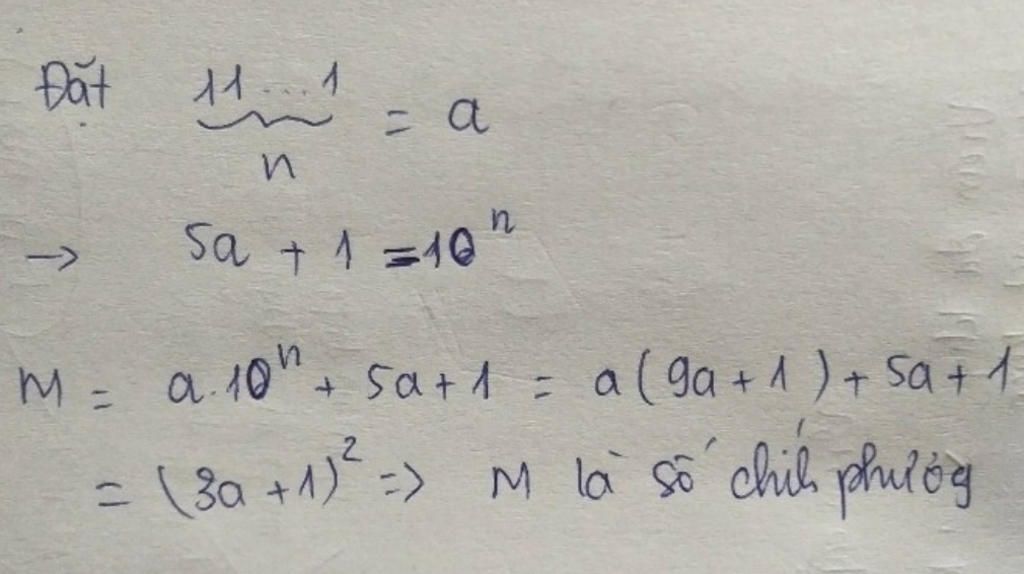 Đặt 11...1 = a
n
→ 5a + 1 = 10ⁿ
M = a.10ⁿ + 5a + 1 = a(9a + 1) + 5a + 1
= (3a + 1)² => M là số chíh phươg